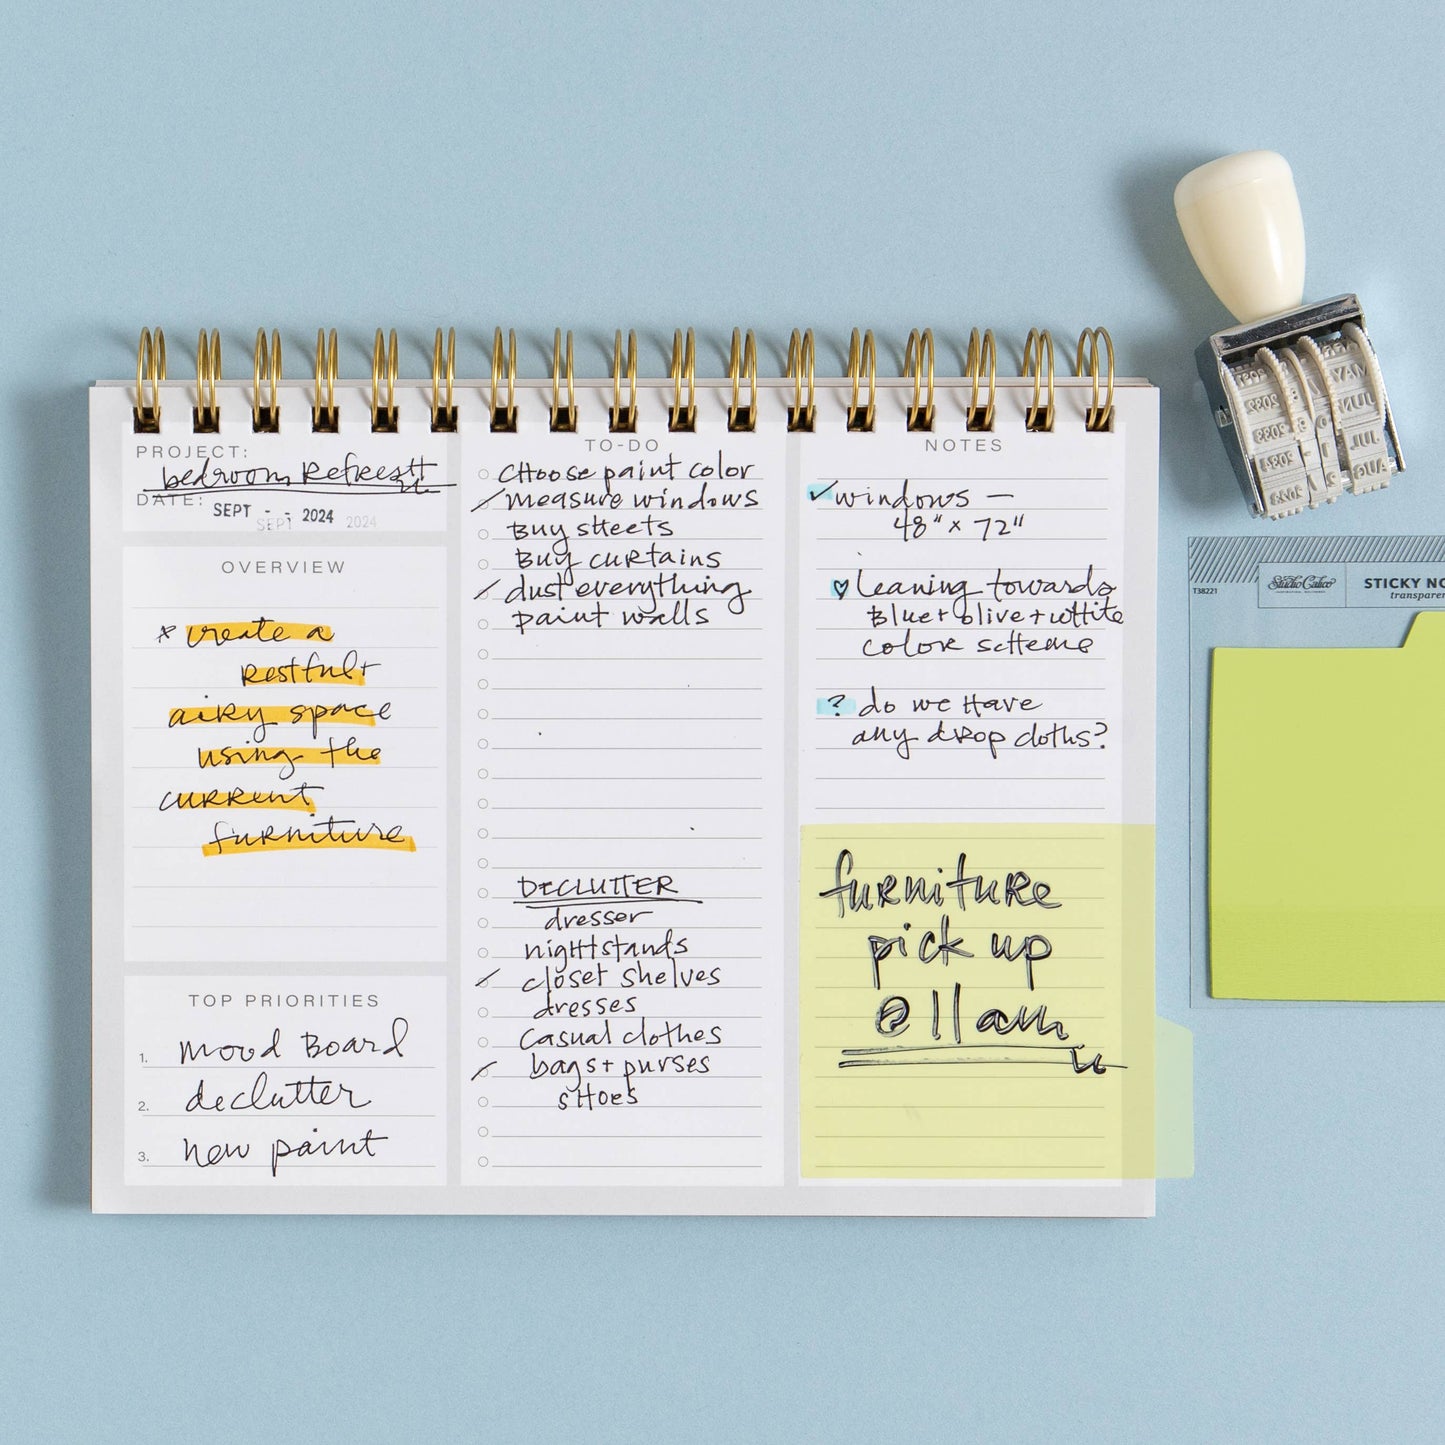 PROJECT:
bedroom Refresh
DATE:
SEPT - - 2024
SEPT 2024
OVERVIEW
* create a
restful +
airy space
using the
current
furniture
TOP PRIORITIES
1. mood board
2. declutter
3. new paint
TO-DO
choose paint color
measure windows
Buy sheets
Buy curtains
dust everything
paint walls
DECLUTTER
dresser
nightstands
closet shelves
dresses
casual clothes
bags + purses
shoes
NOTES
✓ windows —
48" x 72"
♡ leaning towards
Blue + olive + white
color scheme
? do we have
any drop cloths?
furniture
pick up
@ 11 am
MAY
JUN
JUL
AUG
2032
2033
2034
T38221
Studio Calico
STICKY NO
transparen